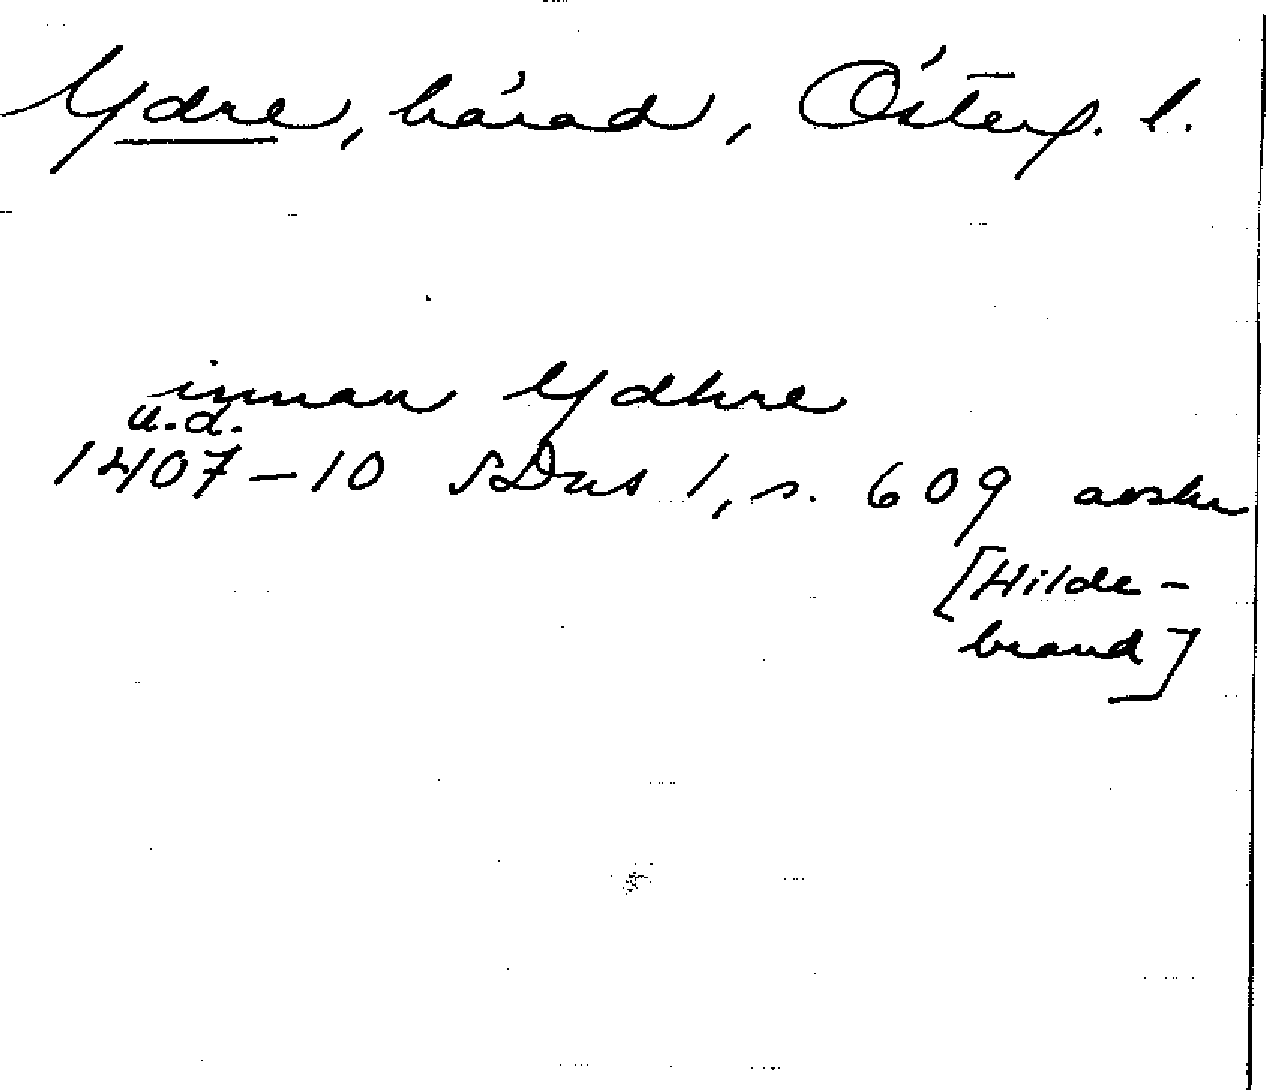 Ydre, härad, Österg. l.
innan Ydhre
u.d.
1407-10 SDns 1, s. 609 avskr
[Hilde-
brand]